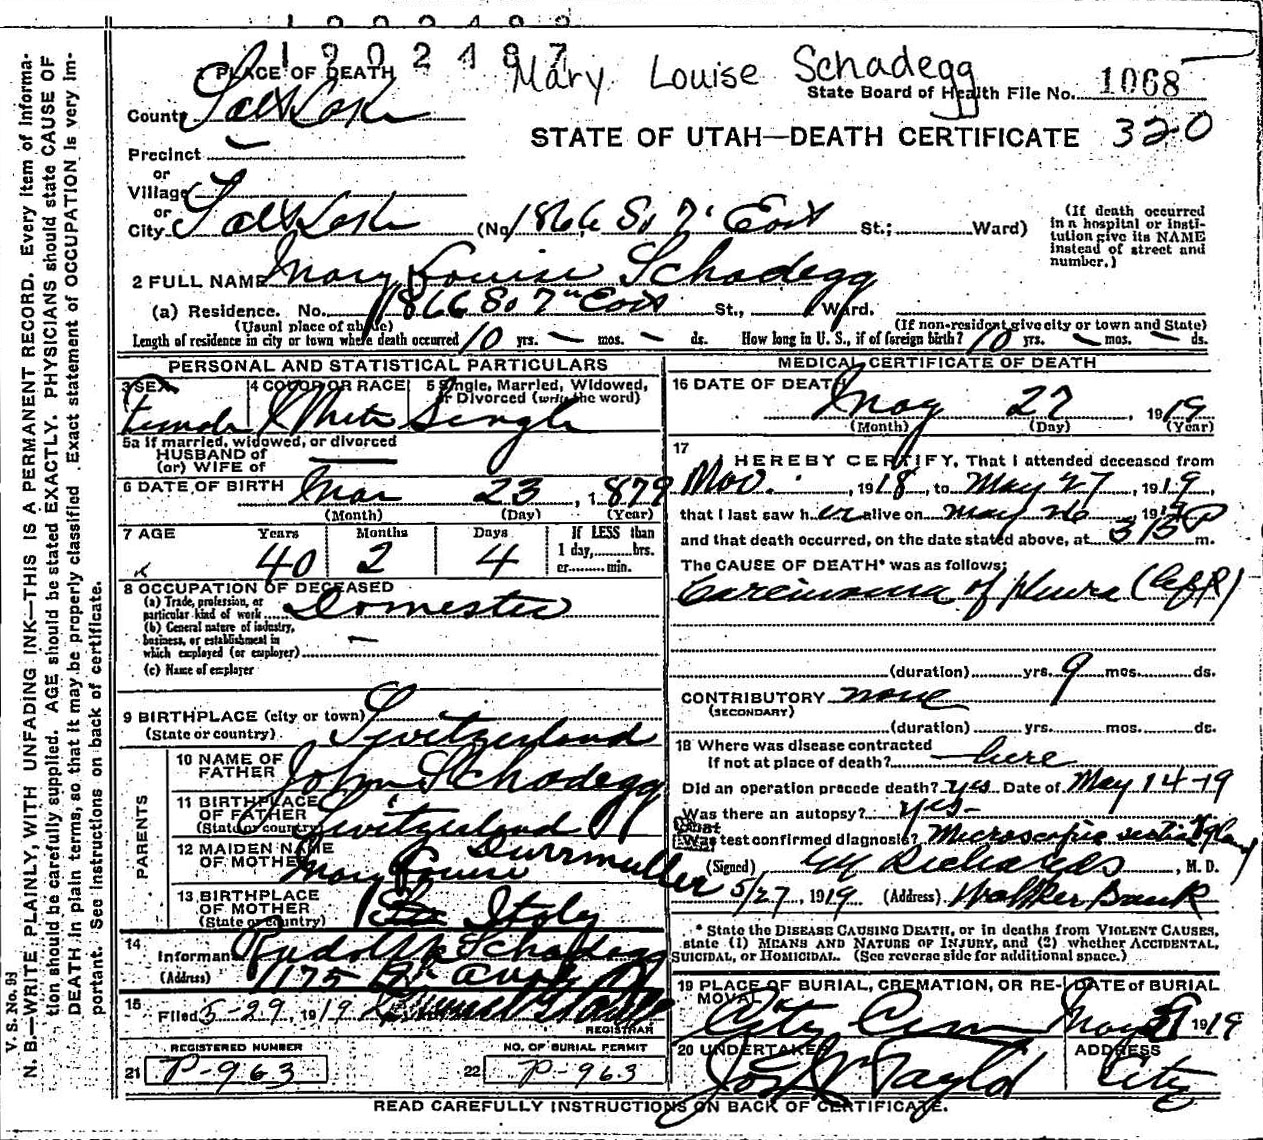 1902487
Mary Louise Schadegg
1 PLACE OF DEATH
State Board of Health File No. 1068
County Salt Lake
STATE OF UTAH—DEATH CERTIFICATE 320
Precinct —
or
Village
or
City Salt Lake (No. 1866 So 7" East St.; Ward)
(If death occurred in a hospital or institution give its NAME instead of street and number.)
2 FULL NAME Mary Louise Schadegg
(a) Residence. No. 1866 So 7th East St., Ward.
(Usual place of abode) (If non-resident give city or town and State)
Length of residence in city or town where death occurred 10 yrs. — mos. — ds. How long in U. S., if of foreign birth? 10 yrs. — mos. — ds.
PERSONAL AND STATISTICAL PARTICULARS
3 SEX Female
4 COLOR OR RACE White
5 Single, Married, Widowed, or Divorced (write the word) Single
5a If married, widowed, or divorced
HUSBAND of
(or) WIFE of —
6 DATE OF BIRTH Mar 23, 1879
(Month) (Day) (Year)
7 AGE Years 40 Months 2 Days 4
If LESS than
1 day, hrs.
or min.
8 OCCUPATION OF DECEASED
(a) Trade, profession, or particular kind of work Domestic
(b) General nature of industry, business, or establishment in which employed (or employer) —
(c) Name of employer
9 BIRTHPLACE (city or town)
(State or country) Switzerland
PARENTS
10 NAME OF FATHER John Schadegg
11 BIRTHPLACE OF FATHER (State or country) Switzerland
12 MAIDEN NAME OF MOTHER Mary Louise Durrmuller
13 BIRTHPLACE OF MOTHER (State or country) Italy
14 Informant Rudolph Schadegg
(Address) 1175
15 Filed 5-29, 1919
REGISTRAR
REGISTERED NUMBER
21 P-963
NO. OF BURIAL PERMIT
22 P-963
MEDICAL CERTIFICATE OF DEATH
16 DATE OF DEATH May 27, 1919
(Month) (Day) (Year)
17 I HEREBY CERTIFY, That I attended deceased from
Nov., 1918, to May 27, 1919,
that I last saw her alive on May 26 1919
and that death occurred, on the date stated above, at 315 P m.
The CAUSE OF DEATH* was as follows:
Carcinoma of pleura (left)
(duration) yrs. 9 mos. ds.
CONTRIBUTORY none
(SECONDARY)
(duration) yrs. mos. ds.
18 Where was disease contracted
if not at place of death? here
Did an operation precede death? yes Date of May 14-19
Was there an autopsy? yes-
What test confirmed diagnosis? Microscopic section gland
(Signed) GG Richards, M. D.
5/27, 1919 (Address) Walker Bank
* State the DISEASE CAUSING DEATH, or in deaths from VIOLENT CAUSES, state (1) MEANS AND NATURE OF INJURY, and (2) whether ACCIDENTAL, SUICIDAL, or HOMICIDAL. (See reverse side for additional space.)
19 PLACE OF BURIAL, CREMATION, OR REMOVAL City Cem
DATE of BURIAL May 31 1919
20 UNDERTAKER Jos Wm Taylor
ADDRESS City
READ CAREFULLY INSTRUCTIONS ON BACK OF CERTIFICATE.
V. S. No. 9j
N. B.—WRITE PLAINLY, WITH UNFADING INK—THIS IS A PERMANENT RECORD. Every item of information should be carefully supplied. AGE should be stated EXACTLY. PHYSICIANS should state CAUSE OF DEATH in plain terms, so that it may be properly classified. Exact statement of OCCUPATION is very important. See instructions on back of certificate.